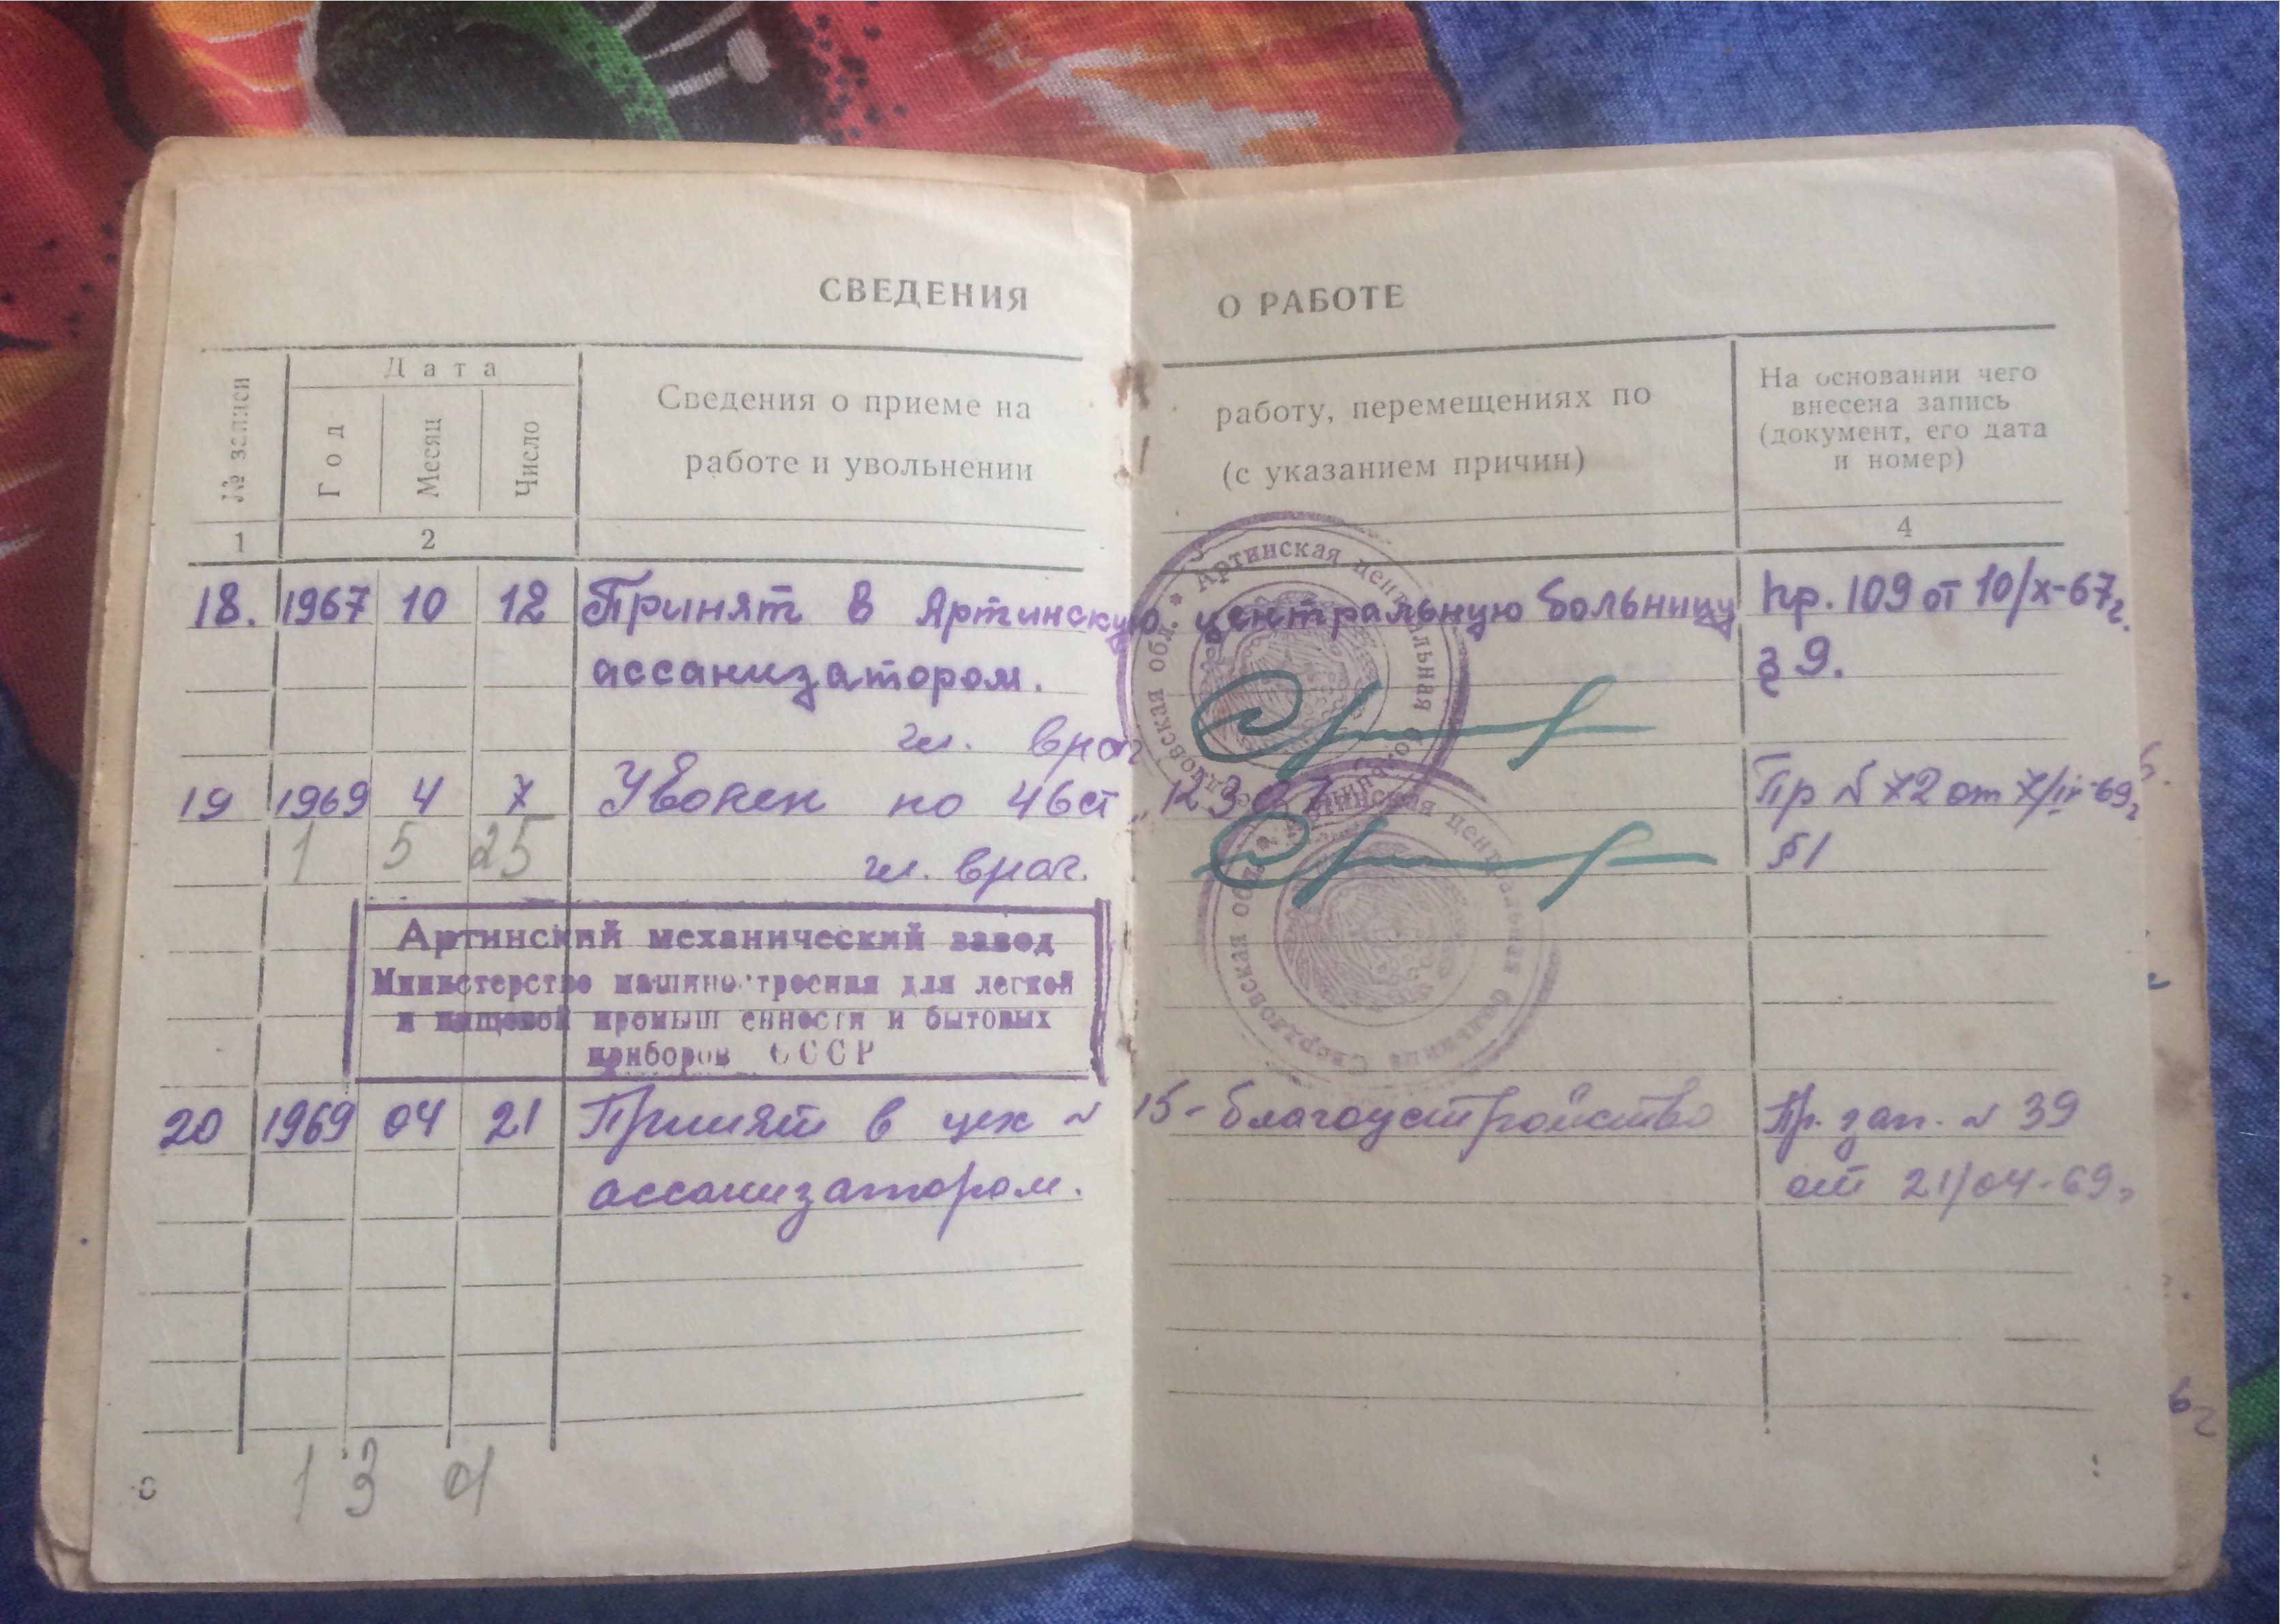 СВЕДЕНИЯ О РАБОТЕ
№ записи
Дата
Год
Месяц
Число
Сведения о приеме на работу, перемещениях по
работе и увольнении (с указанием причин)
На основании чего
внесена запись
(документ, его дата
и номер)
1 2 4
18. 1967 10 12 Принят в Артинскую центральную больницу Пр. 109 от 10/X-67г.
ассанизатором. § 9.
гл. врач
19 1969 4 7 Уволен по 46ст Пр № 72 от 7/IV-69г
1 5 25
гл. врач. §1
Артинская центральная больница * Свердловская обл. *
Артинская центральная больница Свердловская обл.
Артинский механический завод
Министерство машиностроения для легкой
и пищевой промыш енности и бытовых
приборов СССР
20 1969 04 21 Принят в цех № 15-благоустройство Пр. зап. № 39
ассанизатором. от 21/04-69г
1 3